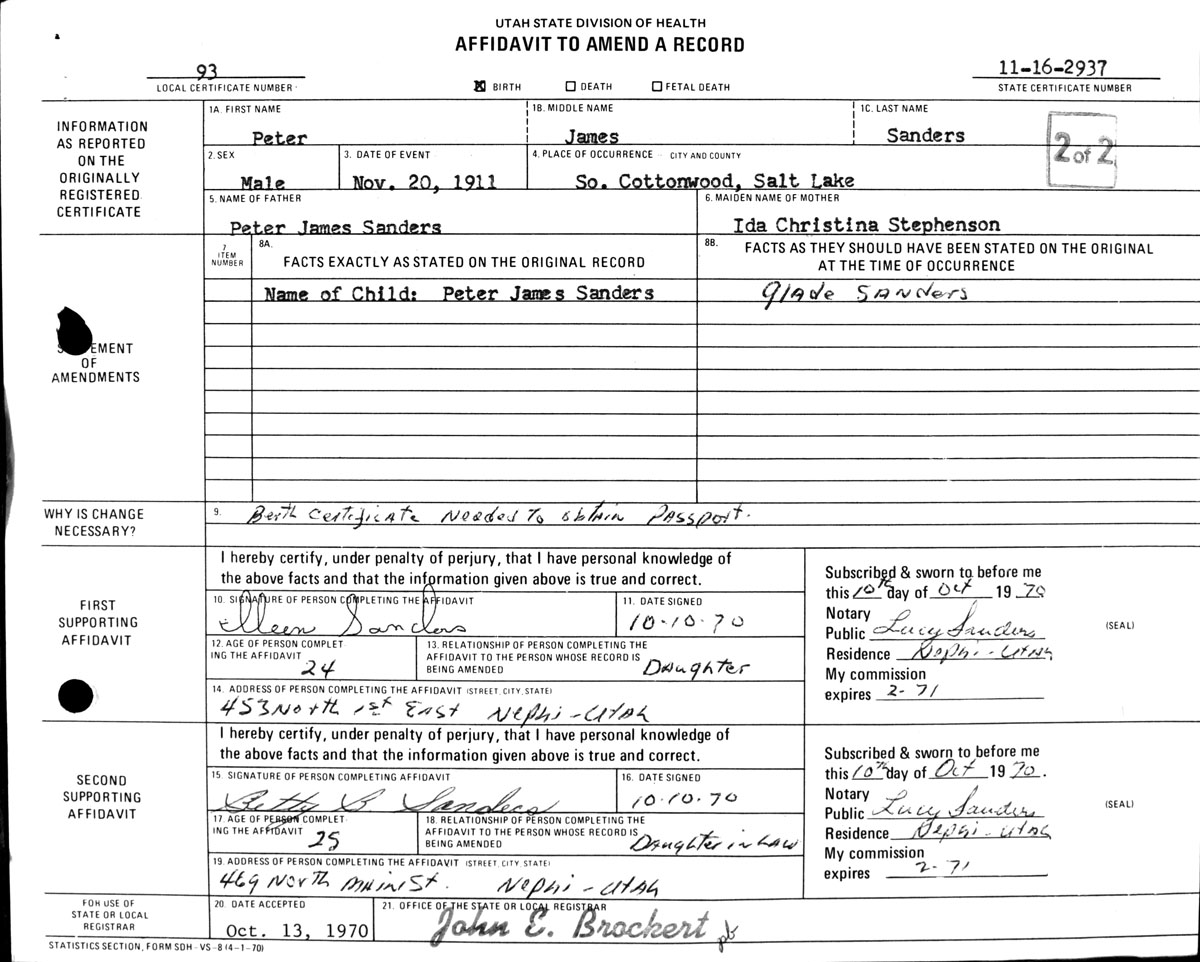 UTAH STATE DIVISION OF HEALTH
AFFIDAVIT TO AMEND A RECORD
93
LOCAL CERTIFICATE NUMBER
☒ BIRTH ☐ DEATH ☐ FETAL DEATH
11-16-2937
STATE CERTIFICATE NUMBER
INFORMATION
AS REPORTED
ON THE
ORIGINALLY
REGISTERED
CERTIFICATE
1A. FIRST NAME
Peter
1B. MIDDLE NAME
James
1C. LAST NAME
Sanders
2 of 2
2. SEX
Male
3. DATE OF EVENT
Nov. 20, 1911
4. PLACE OF OCCURRENCE - CITY AND COUNTY
So. Cottonwood, Salt Lake
5. NAME OF FATHER
Peter James Sanders
6. MAIDEN NAME OF MOTHER
Ida Christina Stephenson
EMENT
OF
AMENDMENTS
7
ITEM
NUMBER
8A.
FACTS EXACTLY AS STATED ON THE ORIGINAL RECORD
8B.
FACTS AS THEY SHOULD HAVE BEEN STATED ON THE ORIGINAL
AT THE TIME OF OCCURRENCE
Name of Child: Peter James Sanders
Glade Sanders
WHY IS CHANGE
NECESSARY?
9. Berth Certificate Needed To obtain Passport.
FIRST
SUPPORTING
AFFIDAVIT
I hereby certify, under penalty of perjury, that I have personal knowledge of
the above facts and that the information given above is true and correct.
10. SIGNATURE OF PERSON COMPLETING THE AFFIDAVIT
Illeen Sanders
11. DATE SIGNED
10-10-70
12. AGE OF PERSON COMPLET
ING THE AFFIDAVIT
24
13. RELATIONSHIP OF PERSON COMPLETING THE
AFFIDAVIT TO THE PERSON WHOSE RECORD IS
BEING AMENDED
Daughter
14. ADDRESS OF PERSON COMPLETING THE AFFIDAVIT (STREET, CITY, STATE)
453 North 1st East Nephi - Utah
Subscribed & sworn to before me
this 10th day of Oct 19 70
Notary
Public Lucy Sanders
Residence Nephi - Utah
My commission
expires 2-71
(SEAL)
SECOND
SUPPORTING
AFFIDAVIT
I hereby certify, under penalty of perjury, that I have personal knowledge of
the above facts and that the information given above is true and correct.
15. SIGNATURE OF PERSON COMPLETING AFFIDAVIT
Betty B. Sanders
16. DATE SIGNED
10-10-70
17. AGE OF PERSON COMPLET
ING THE AFFIDAVIT
25
18. RELATIONSHIP OF PERSON COMPLETING THE
AFFIDAVIT TO THE PERSON WHOSE RECORD IS
BEING AMENDED
Daughter in Law
19. ADDRESS OF PERSON COMPLETING THE AFFIDAVIT (STREET, CITY, STATE)
469 North Main St. Nephi - Utah
Subscribed & sworn to before me
this 10th day of Oct 19 70.
Notary
Public Lucy Sanders
Residence Nephi - Utah
My commission
expires 2-71
(SEAL)
FOR USE OF
STATE OR LOCAL
REGISTRAR
20. DATE ACCEPTED
Oct. 13, 1970
21. OFFICE OF THE STATE OR LOCAL REGISTRAR
John E. Brockert
pb
STATISTICS SECTION, FORM SDH - VS - 8 (4-1-70)